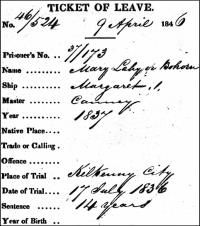 TICKET OF LEAVE.
No. 46/524 9 April 1846
Prisoner's No. 37/173
Name Mary Leahy or Bohorn
Ship Margaret, 1.
Master Canney
Year 1837
Native Place
Trade or Calling
Offence
Place of Trial Kilkenny City
Date of Trial 17 July 1836
Sentence 14 Years
Year of Birth